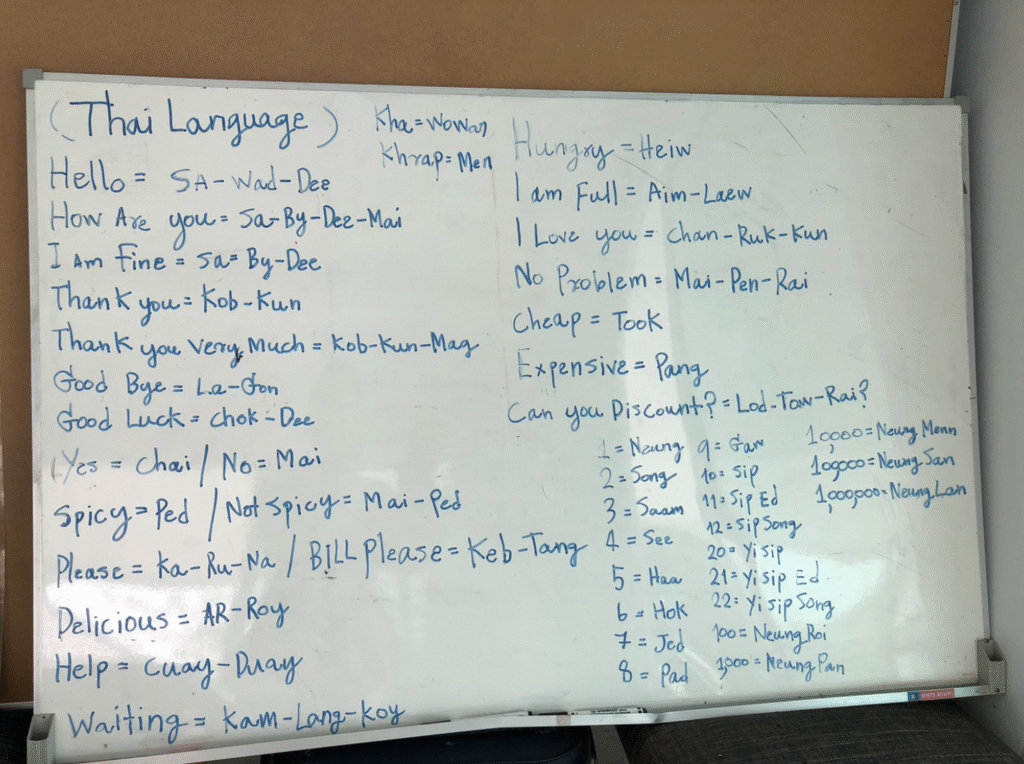 (Thai Language)
Kha = Woman
Khrap = Men
Hello = SA-Wad-Dee
How Are you = Sa-By-Dee-Mai
I Am Fine = Sa-By-Dee
Thank you = Kob-Kun
Thank you Very Much = Kob-Kun-Mag
Good Bye = La-Gon
Good Luck = Chok-Dee
Yes = Chai / No = Mai
Spicy = Ped / Not Spicy = Mai-Ped
Please = Ka-Ru-Na / BILL Please = Keb-Tang
Delicious = AR-Roy
Help = Cuay-Duay
Waiting = Kam-Lang-Koy
Hungry = Heiw
I am Full = Aim-Laew
I Love you = Chan-Ruk-Kun
No Problem = Mai-Pen-Rai
Cheap = Took
Expensive = Pang
Can you Discount? = Lod-Taw-Rai?
1 = Neung
2 = Song
3 = Saam
4 = See
5 = Haa
6 = Hok
7 = Jed
8 = Pad
9 = Gaw
10 = Sip
11 = Sip Ed
12 = Sip Song
20 = Yi Sip
21 = Yi Sip Ed
22 = Yi Sip Song
100 = Neung Roi
1,000 = Neung Pan
10,000 = Neung Menn
100,000 = Neung San
1,000,000 = Neung Lan